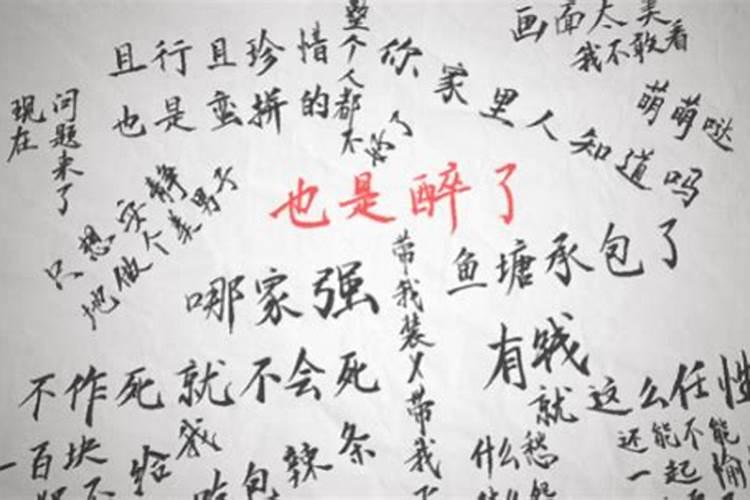 画面太美
我不敢看
且行且珍惜
整个人都不好了
你家里人知道吗
也是蛮拼的
萌萌哒
现在
问题来了
只想安静
地做个美男子
也是醉了
哪家强
带我装X带我
鱼塘承包了
有钱
就这么任性
不作死就不会死
一百块
不给我
包辣条
什么愁
什么怨
还能不能
一起愉